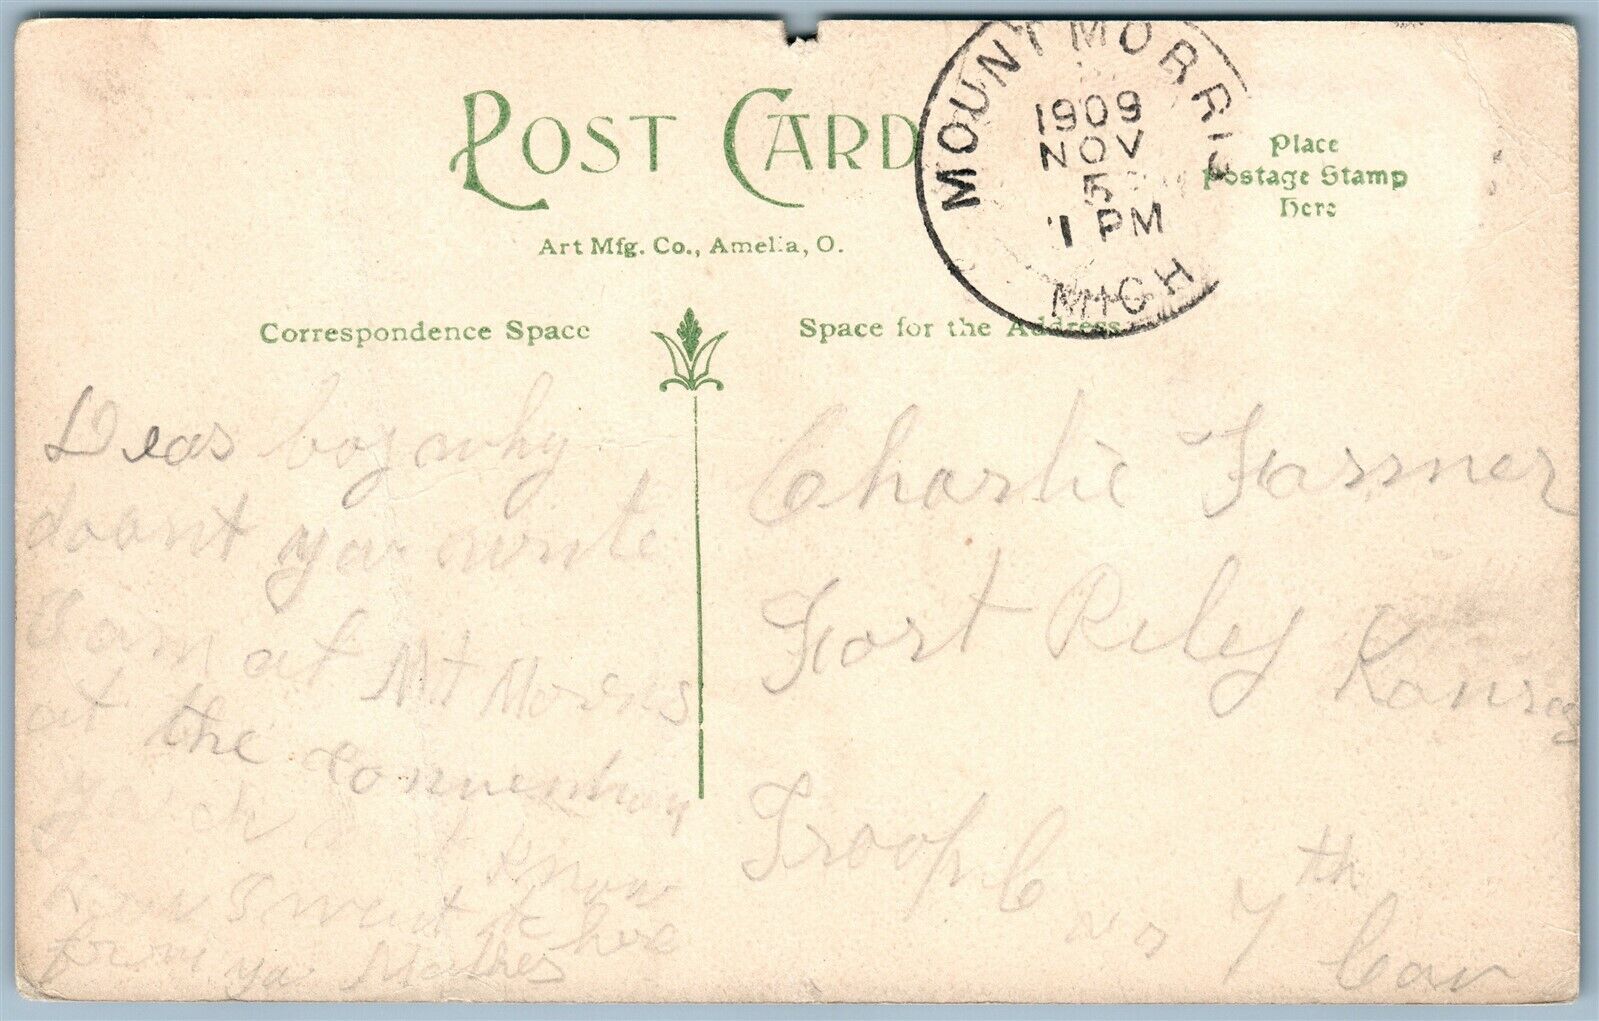 POST CARD
Art Mfg. Co., Amelia, O.
MOUNT MORRIS
1909
NOV
5
1 PM
MICH
Place
Postage Stamp
Here
Correspondence Space
Space for the Address
Dear boy why
doant you write
I am at Mt Morris
at the convention
know
how I went to
from here
ya Mother
Charlie Farmer
Fort Riley Kansas
Troop C no 7th Cav